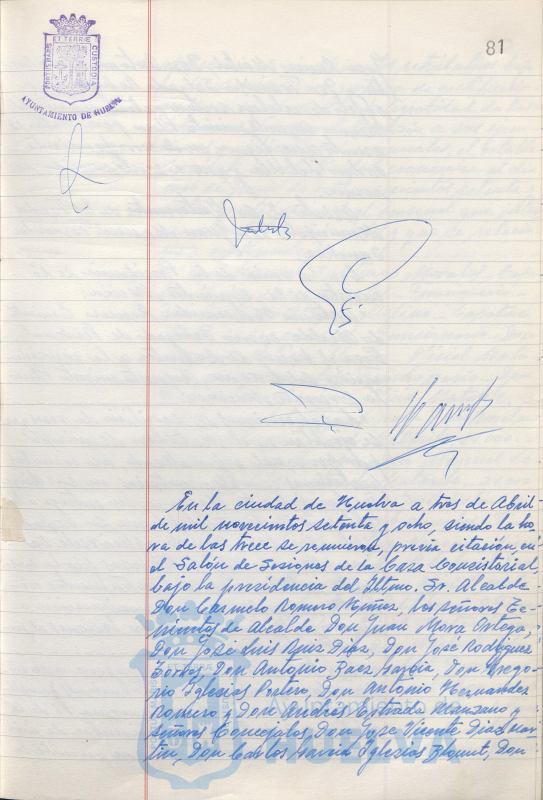 ET TERRÆ
PORTUS MARIS
CUSTODIA
AYUNTAMIENTO DE HUELVA
81
En la ciudad de Huelva a tres de Abril
de mil novecientos setenta y ocho, siendo la ho-
ra de las trece se reunieron, previa citación, en
el Salón de Sesiones de la Casa Consistorial,
bajo la presidencia del Iltmo. Sr. Alcalde
Don Carmelo Romero Núñez, los señores Te-
nientes de Alcalde Don Juan Mora Ortega,
Don José Luis Ruiz Díaz, Don José Rodríguez
Don Antonio Baez García, Don Grego-
rio Iglesias Don Antonio Hernández
Romero y Don Andrés Estrada Manzano y
señores Concejales, Don José Vicente Díaz Mar-
tín, Don Carlos García Iglesias Blount, Don